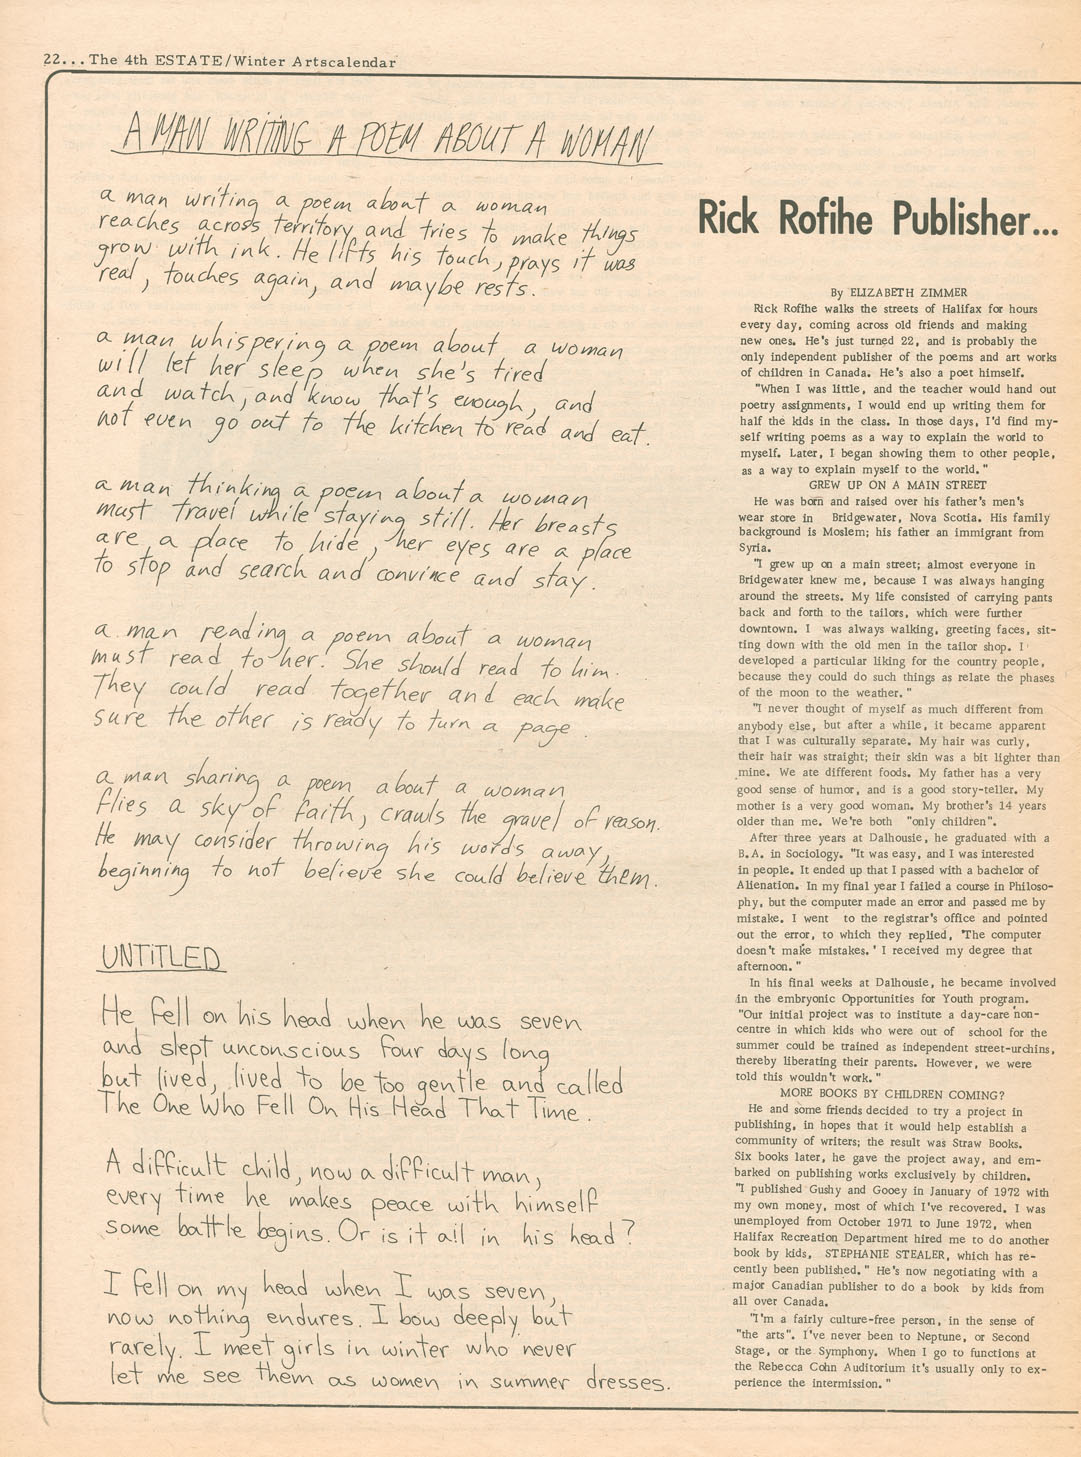 22...The 4th ESTATE/Winter Artscalendar
A MAN WRITING A POEM ABOUT A WOMAN
a man writing a poem about a woman
reaches across territory and tries to make things
grow with ink. He lifts his touch, prays it was
real, touches again, and maybe rests.
a man whispering a poem about a woman
will let her sleep when she's tired
and watch, and know that's enough, and
not even go out to the kitchen to read and eat.
a man thinking a poem about a woman
must travel while staying still. Her breasts
are a place to hide, her eyes are a place
to stop and search and convince and stay.
a man reading a poem about a woman
must read to her. She should read to him.
They could read together and each make
sure the other is ready to turn a page.
a man sharing a poem about a woman
flies a sky of faith, crawls the gravel of reason.
He may consider throwing his words away,
beginning to not believe she could believe them.
UNTITLED
He fell on his head when he was seven
and slept unconscious four days long
but lived, lived to be too gentle and called
The One Who Fell On His Head That Time.
A difficult child, now a difficult man,
every time he makes peace with himself
some battle begins. Or is it all in his head?
I fell on my head when I was seven,
now nothing endures. I bow deeply but
rarely. I meet girls in winter who never
let me see them as women in summer dresses.
Rick Rofihe Publisher...
By ELIZABETH ZIMMER
Rick Rofihe walks the streets of Halifax for hours
every day, coming across old friends and making
new ones. He's just turned 22, and is probably the
only independent publisher of the poems and art works
of children in Canada. He's also a poet himself.
"When I was little, and the teacher would hand out
poetry assignments, I would end up writing them for
half the kids in the class. In those days, I'd find my-
self writing poems as a way to explain the world to
myself. Later, I began showing them to other people,
as a way to explain myself to the world."
GREW UP ON A MAIN STREET
He was born and raised over his father's men's
wear store in Bridgewater, Nova Scotia. His family
background is Moslem; his father an immigrant from
Syria.
"I grew up on a main street; almost everyone in
Bridgewater knew me, because I was always hanging
around the streets. My life consisted of carrying pants
back and forth to the tailors, which were further
downtown. I was always walking, greeting faces, sit-
ting down with the old men in the tailor shop. I
developed a particular liking for the country people,
because they could do such things as relate the phases
of the moon to the weather."
"I never thought of myself as much different from
anybody else, but after a while, it became apparent
that I was culturally separate. My hair was curly,
their hair was straight; their skin was a bit lighter than
mine. We ate different foods. My father has a very
good sense of humor, and is a good story-teller. My
mother is a very good woman. My brother's 14 years
older than me. We're both "only children".
After three years at Dalhousie, he graduated with a
B.A. in Sociology. "It was easy, and I was interested
in people. It ended up that I passed with a bachelor of
Alienation. In my final year I failed a course in Philoso-
phy, but the computer made an error and passed me by
mistake. I went to the registrar's office and pointed
out the error, to which they replied, 'The computer
doesn't make mistakes.' I received my degree that
afternoon."
In his final weeks at Dalhousie, he became involved
in the embryonic Opportunities for Youth program.
"Our initial project was to institute a day-care non-
centre in which kids who were out of school for the
summer could be trained as independent street-urchins,
thereby liberating their parents. However, we were
told this wouldn't work."
MORE BOOKS BY CHILDREN COMING?
He and some friends decided to try a project in
publishing, in hopes that it would help establish a
community of writers; the result was Straw Books.
Six books later, he gave the project away, and em-
barked on publishing works exclusively by children.
"I published Gushy and Gooey in January of 1972 with
my own money, most of which I've recovered. I was
unemployed from October 1971 to June 1972, when
Halifax Recreation Department hired me to do another
book by kids, STEPHANIE STEALER, which has re-
cently been published." He's now negotiating with a
major Canadian publisher to do a book by kids from
all over Canada.
"I'm a fairly culture-free person, in the sense of
"the arts". I've never been to Neptune, or Second
Stage, or the Symphony. When I go to functions at
the Rebecca Cohn Auditorium it's usually only to ex-
perience the intermission."